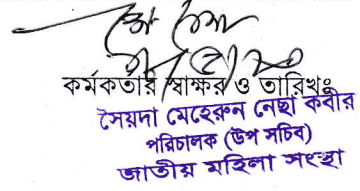 কর্মকর্তার স্বাক্ষর ও তারিখঃ
সৈয়দা মেহেরুন নেছা কবীর
পরিচালক (উপ সচিব)
জাতীয় মহিলা সংস্থা